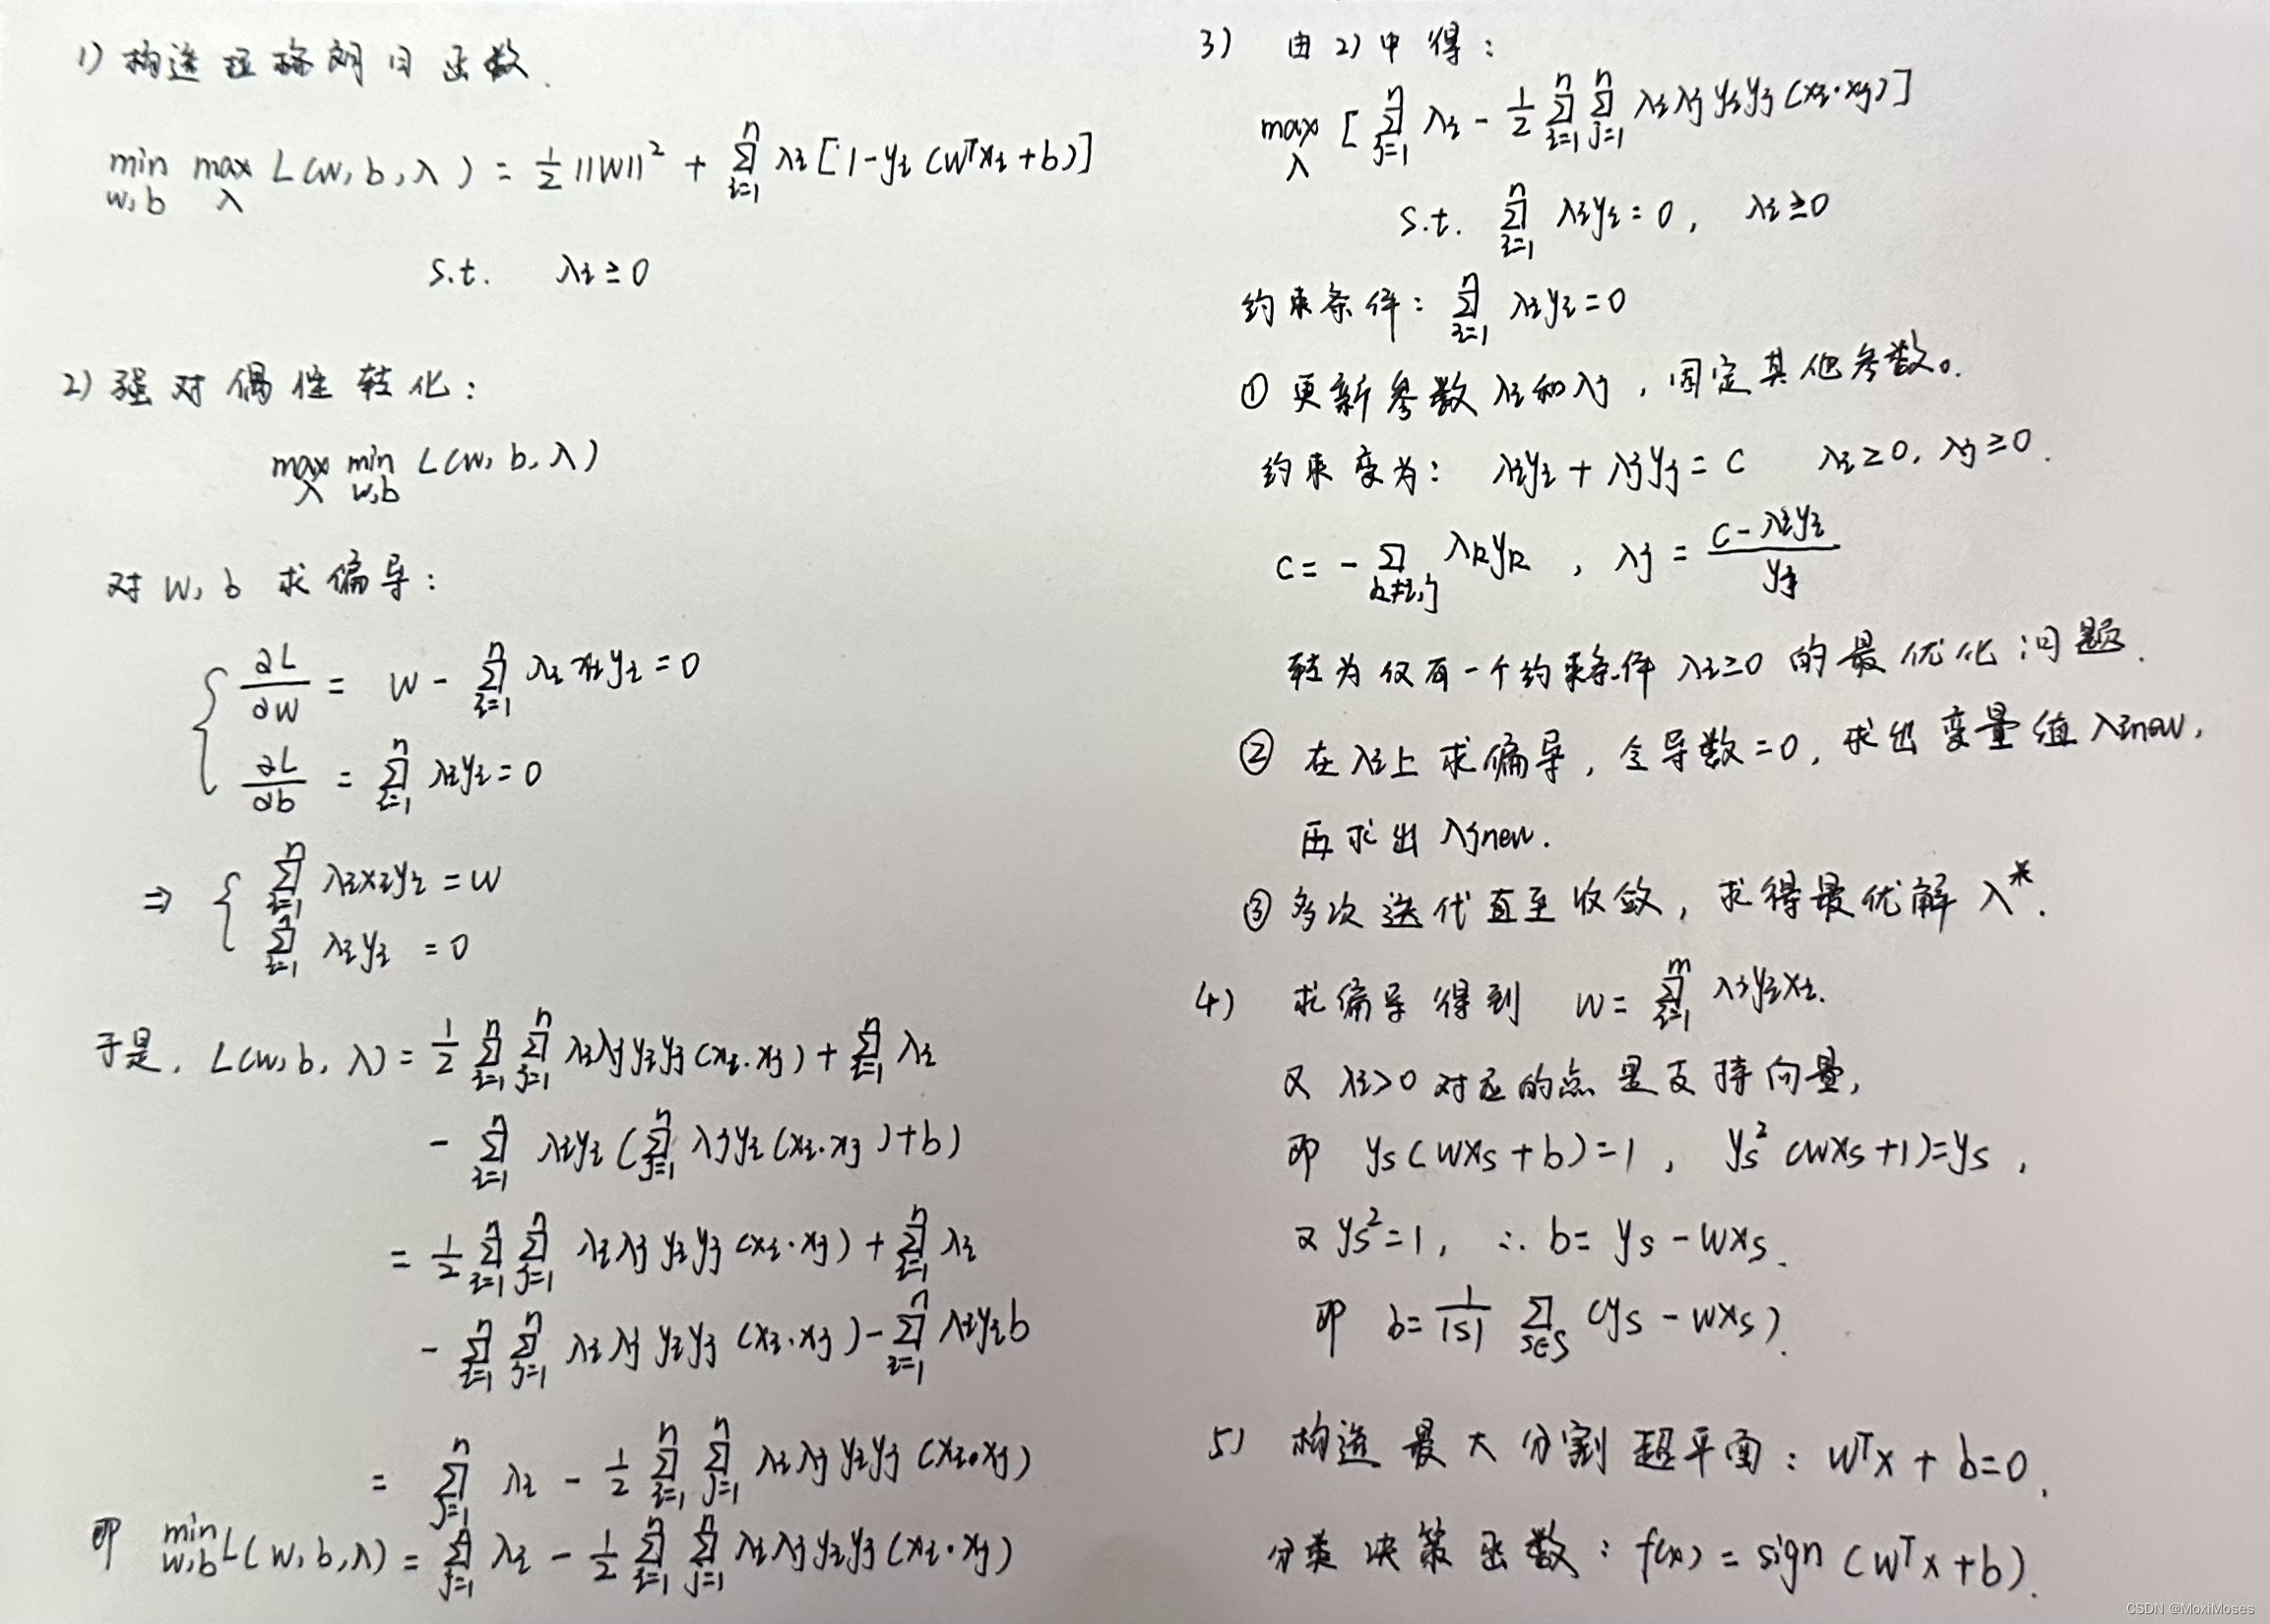 1) 构造拉格朗日函数.
min max L(w, b, λ) = 1/2 ||W||² + Σ_{i=1}^{n} λi [1-yi (wᵀxi + b)]
w,b λ
s.t. λi ≥ 0
2) 强对偶性转化:
max min L(w, b, λ)
λ w,b
对 w, b 求偏导:
∂L/∂w = w - Σ_{i=1}^{n} λi xi yi = 0
∂L/∂b = Σ_{i=1}^{n} λi yi = 0
⇒ { Σ_{i=1}^{n} λi xi yi = w
Σ_{i=1}^{n} λi yi = 0
于是, L(w, b, λ) = 1/2 Σ_{i=1}^{n} Σ_{j=1}^{n} λi λj yi yj (xi·xj) + Σ_{i=1}^{n} λi
- Σ_{i=1}^{n} λi yi (Σ_{j=1}^{n} λj yi (xi·xj) + b)
= 1/2 Σ_{i=1}^{n} Σ_{j=1}^{n} λi λj yi yj (xi·xj) + Σ_{i=1}^{n} λi
- Σ_{i=1}^{n} Σ_{j=1}^{n} λi λj yi yj (xi·xj) - Σ_{i=1}^{n} λi yi b
= Σ_{j=1}^{n} λi - 1/2 Σ_{i=1}^{n} Σ_{j=1}^{n} λi λj yi yj (xi·xj)
即 min L(w, b, λ) = Σ_{j=1}^{n} λi - 1/2 Σ_{i=1}^{n} Σ_{j=1}^{n} λi λj yi yj (xi·xj)
w,b
3) 由2)中得:
max [Σ_{j=1}^{n} λi - 1/2 Σ_{i=1}^{n} Σ_{j=1}^{n} λi λj yi yj (xi·xj)]
λ
s.t. Σ_{i=1}^{n} λi yi = 0, λi ≥ 0
约束条件: Σ_{i=1}^{n} λi yi = 0
① 更新参数 λi 和 λj, 固定其他参数。
约束变为: λi yi + λj yj = c λi ≥ 0, λj ≥ 0.
c = - Σ_{k≠i,j} λk yk, λj = (c - λi yi)/yj
转为仅有一个约束条件 λi ≥ 0 的最优化问题.
② 在 λi 上求偏导, 令导数=0, 求出变量值 λi new,
再求出 λj new.
③ 多次迭代直至收敛, 求得最优解 λ*.
4) 求偏导得到 w = Σ_{i=1}^{m} λj yi xi.
又 λi > 0 对应的点是支持向量,
即 ys (wxs + b) = 1, ys² (wxs + 1) = ys,
又 ys² = 1, ∴ b = ys - wxs.
即 b = 1/|S| Σ_{s∈S} (ys - wxs).
5) 构造最大分割超平面: wᵀx + b = 0.
分类决策函数: f(x) = sign (wᵀx + b).
CSDN @MoxiMoses